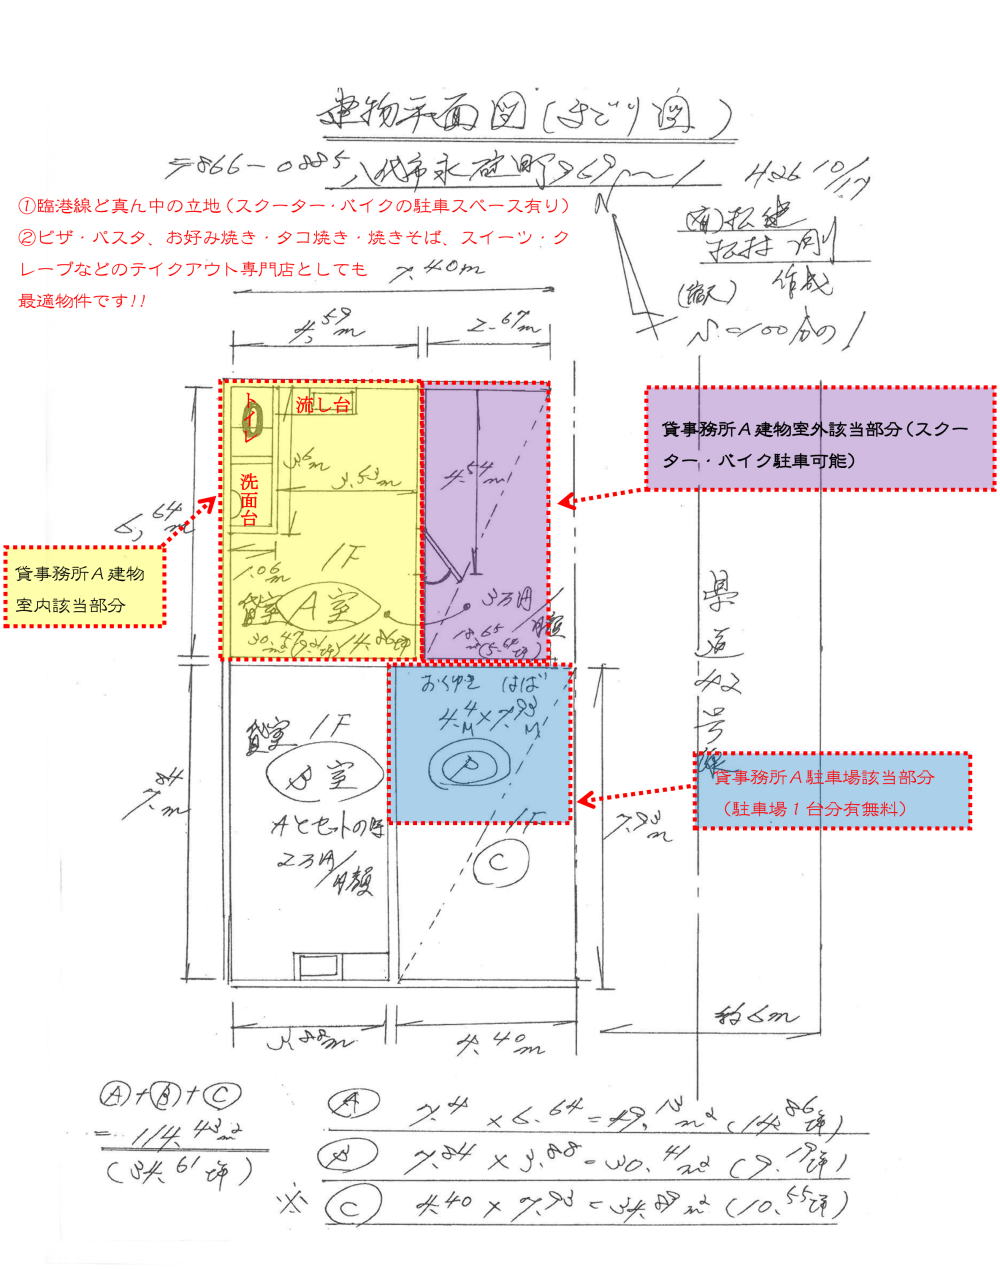 建物平面図(まどり図)
〒866-0885 八代市永碇町969〜1
H26 10/17
①臨港線ど真ん中の立地(スクーター・バイクの駐車スペース有り)
②ピザ・パスタ、お好み焼き・タコ焼き・焼きそば、スイーツ・ク
レープなどのテイクアウト専門店としても
最適物件です!!
N
(有)松建
作成
S=100分の1
7.40m
4.59m
2.67m
トイレ
流し台
洗面台
3.6m
3.53m
4.54m
6.64m
1.06m
貸事務所A建物室外該当部分(スクー
ター・バイク駐車可能)
貸事務所A建物
室内該当部分
1F
貸室 A室
30.47m²(9.21坪)/14.86坪
3万円/月額
18.65m²(5.64坪)
県道42号線
おくゆき はば
4.4M×7.93M
P
貸室 1F
B室
Aとセットの時
2万円/月額
貸事務所A駐車場該当部分
(駐車場1台分有無料)
1F
C
7.84m
7.93m
約6m
3.88m
4.40m
A+B+C
=114.43m²
(34.61坪)
A 7.4×6.64=49.13m²(14.86坪)
B 7.84×3.88=30.41m²(9.19坪)
※ C 4.40×7.93=34.89m²(10.55坪)